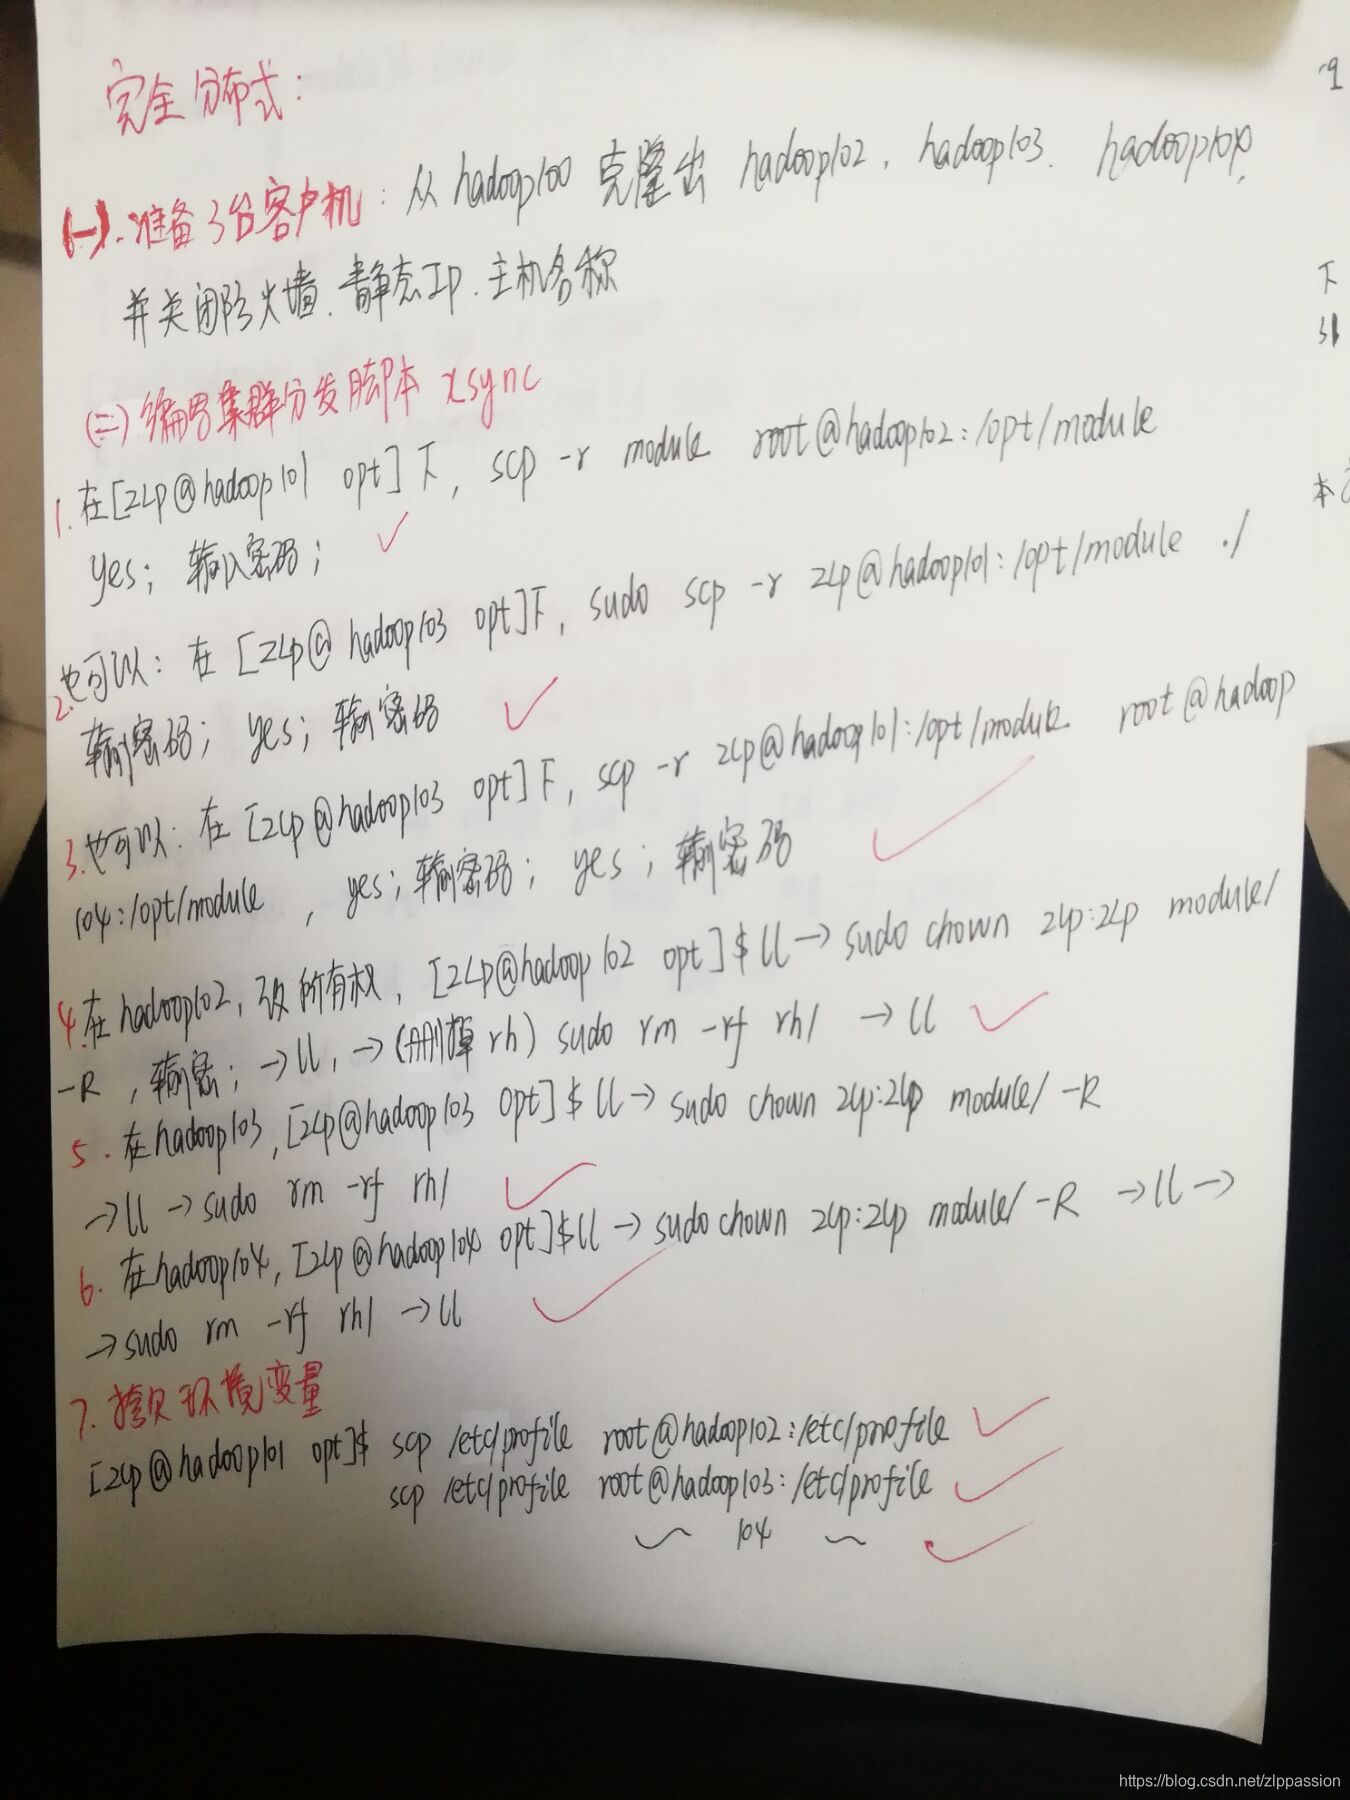 完全分布式:
(一).准备3台客户机: 从hadoop100 克隆出 hadoop102, hadoop103. hadoop104,
并关闭防火墙.静态IP.主机名称
(二)编写集群分发脚本 xsync
1.在[zLp@hadoop101 opt]下, scp -r module root@hadoop102:/opt/module
yes; 输入密码; ✓
2.也可以: 在 [zLp@hadoop103 opt]下, sudo scp -r zLp@hadoop101:/opt/module ./
输密码; yes; 输密码 ✓
3.也可以: 在 [zLp@hadoop103 opt]下, scp -r zLp@hadoop101:/opt/module root@hadoop
104:/opt/module , yes; 输密码; yes; 输密码 ✓
4.在hadoop102, 改所有权, [zLp@hadoop102 opt]$ ll → sudo chown zLp:zLp module/
-R , 输密; → ll, → (删掉 rh) sudo rm -rf rh/ → ll ✓
5. 在hadoop103, [zLp@hadoop103 opt]$ ll → sudo chown zLp:zLp module/ -R
→ ll → sudo rm -rf rh/ ✓
6. 在hadoop104, [zLp@hadoop104 opt]$ll → sudo chown zLp:zLp module/ -R → ll →
→ sudo rm -rf rh/ → ll ✓
7. 拷贝环境变量
[zLp@hadoop101 opt]$ scp /etc/profile root@hadoop102:/etc/profile ✓
scp /etc/profile root@hadoop103:/etc/profile ✓
~ 104 ~ ✓
下
本
https://blog.csdn.net/zlppassion